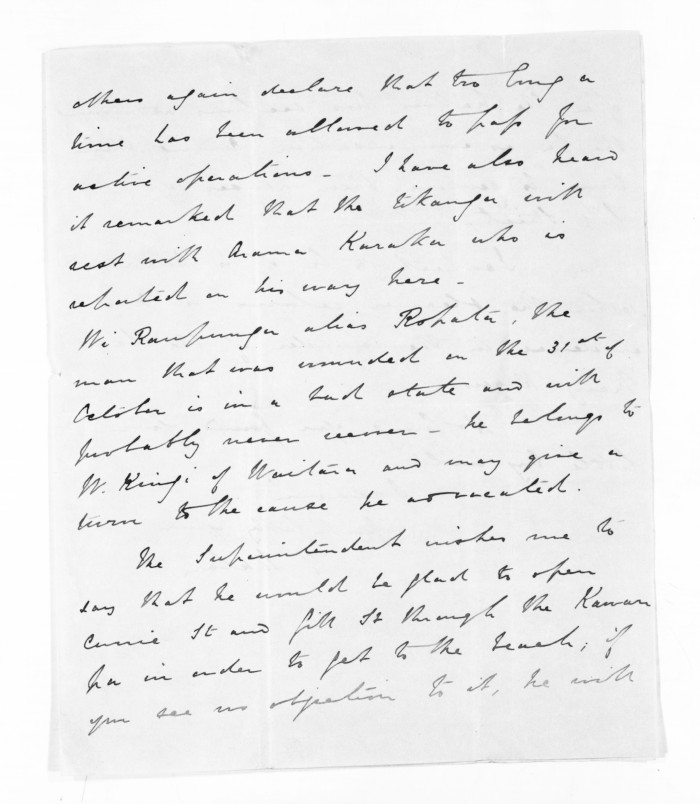 others again declare that too long a
time has been allowed to pass for
active operations - I have also heard
it remarked that the tikanga will
rest with Arama Karaka who is
reported on his way here -
Wi Raupunga alias Ropata, the
man that was wounded on the 31st of
October is in a bad state and will
probably never recover - he belongs to
W. Kingi of Waitara and may give a
turn to the cause he advocated.
The Superintendent wishes me to
say that he would be glad to open
Currie St and Gill St through the Kawau
pa in order to get to the beach; if
you see no objection to it, he will